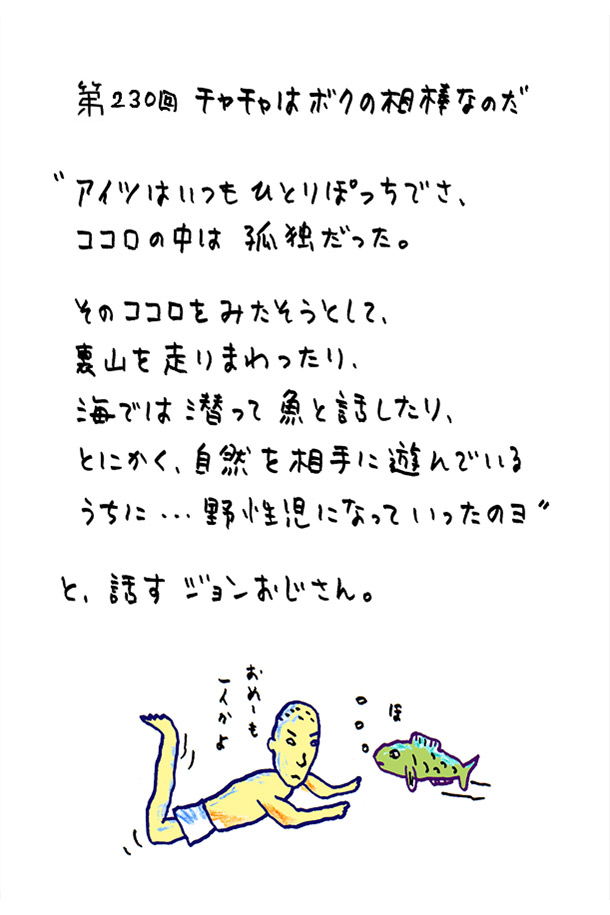 第230回 チャチャはボクの相棒なのだ
〝アイツはいつもひとりぼっちでさ、
ココロの中は 孤独だった。
そのココロをみたそうとして、
裏山を走りまわったり、
海では潜って魚と話したり、
とにかく、自然を相手に遊んでいる
うちに…野性児になっていったのヨ〟
と、話す ジョンおじさん。
おめーも
一人かよ
ほ